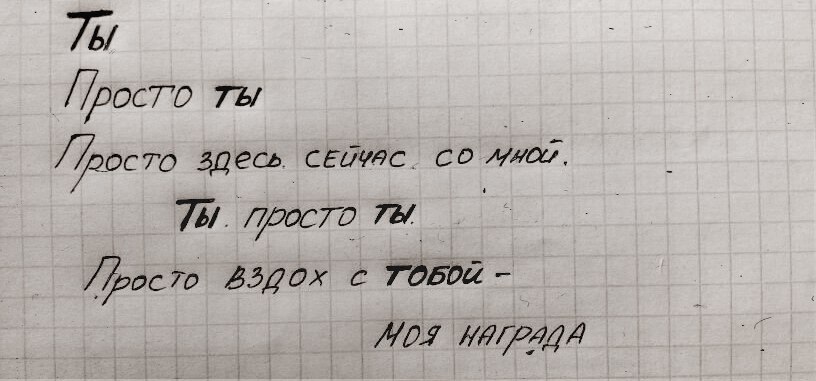 Ты
Просто ты
Просто здесь. сейчас. со мной.
Ты. просто ты.
Просто вздох с тобой –
моя награда